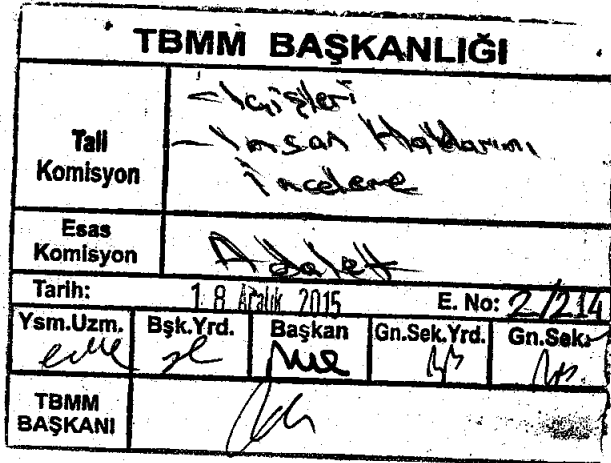 TBMM BAŞKANLIĞI
Tali
Komisyon
- İçişleri
- İnsan Haklarını
İnceleme
Esas
Komisyon
Adalet
Tarih:
18 Aralık 2015
E. No: 2/214
Ysm.Uzm.
Bşk.Yrd.
Başkan
Gn.Sek.Yrd.
Gn.Sek.
TBMM
BAŞKANI